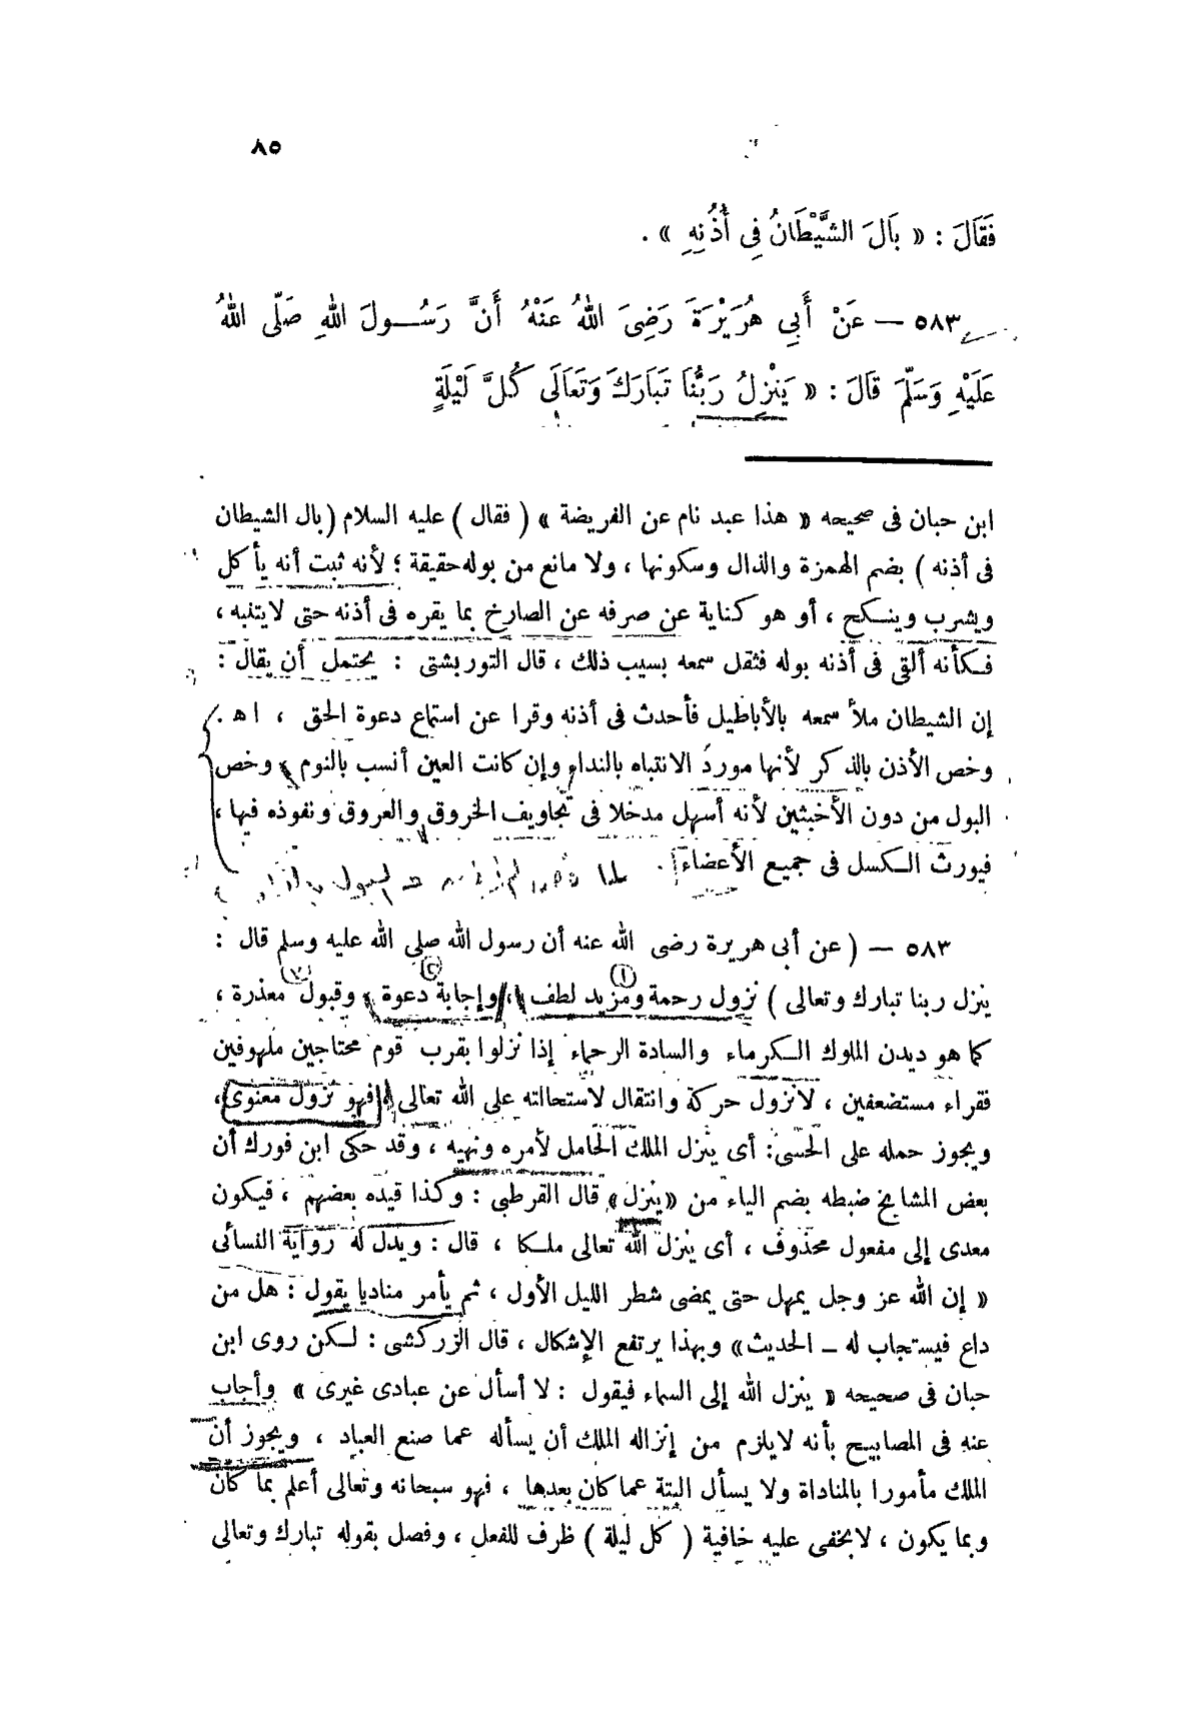 ٨٥
فَقَالَ : « بَالَ الشَّيْطَانُ فِى أُذُنِهِ » .
٥٨٣ — عَنْ أَبِى هُرَيْرَةَ رَضِىَ اللهُ عَنْهُ أَنَّ رَسُولَ اللهِ صَلَّى اللهُ
عَلَيْهِ وَسَلَّمَ قَالَ : « يَنْزِلُ رَبُّنَا تَبَارَكَ وَتَعَالَى كُلَّ لَيْلَةٍ
ابن حبان فى صحيحه « هذا عبد نام عن الفريضة » ( فقال ) عليه السلام (بال الشيطان
فى أذنه ) بضم الهمزة والذال وسكونها ، ولا مانع من بوله حقيقة ؛ لأنه ثبت أنه يأكل
ويشرب وينكح ، أو هو كناية عن صرفه عن الصارخ بما يقره فى أذنه حتى لا يتنبه ،
فكأنه ألقى فى أذنه بوله فثقل سمعه بسبب ذلك ، قال التوربشتى : يحتمل أن يقال :
إن الشيطان ملأ سمعه بالأباطيل فأحدث فى أذنه وقرا عن استماع دعوة الحق ، اهـ .
وخص الأذن بالذكر لأنها مورد الانتباه بالنداء وإن كانت العين أنسب بالنوم ، وخص
البول من دون الأخبثين لأنه أسهل مدخلا فى تجاويف الخروق والعروق ونفوذه فيها ،
فيورث الكسل فى جميع الأعضاء .
٥٨٣ — ( عن أبى هريرة رضى الله عنه أن رسول الله صلى الله عليه وسلم قال :
ينزل ربنا تبارك وتعالى ) نزول رحمة ومزيد لطف ، وإجابة دعوة ، وقبول معذرة ،
كما هو ديدن الملوك الكرماء والسادة الرحماء إذا نزلوا بقرب قوم محتاجين ملهوفين
فقراء مستضعفين ، لانزول حركة وانتقال لاستحالته على الله تعالى ، فهو نزول معنوى ،
ويجوز حمله على الحسى: أى ينزل الملك الحامل لأمره ونهيه ، وقد حكى ابن فورك أن
بعض المشايخ ضبطه بضم الياء من «ينزل» قال القرطبى : وكذا قيده بعضهم ، فيكون
معدى إلى مفعول محذوف ، أى ينزل الله تعالى ملكا ، قال : ويدل له رواية النسائى
« إن الله عز وجل يمهل حتى يمضى شطر الليل الأول ، ثم يأمر مناديا يقول : هل من
داع فيستجاب له — الحديث» وبهذا يرتفع الإشكال ، قال الزركشى : لكن روى ابن
حبان فى صحيحه « ينزل الله إلى السماء فيقول : لا أسأل عن عبادى غيرى » وأجاب
عنه فى المصابيح بأنه لايلزم من إنزاله الملك أن يسأله عما صنع العباد ، ويجوز أن
الملك مأمورا بالمناداة ولا يسأل البتة عما كان بعدها ، فهو سبحانه وتعالى أعلم بما كان
وبما يكون ، لايخفى عليه خافية ( كل ليلة ) ظرف للفعل ، وفصل بقوله تبارك وتعالى